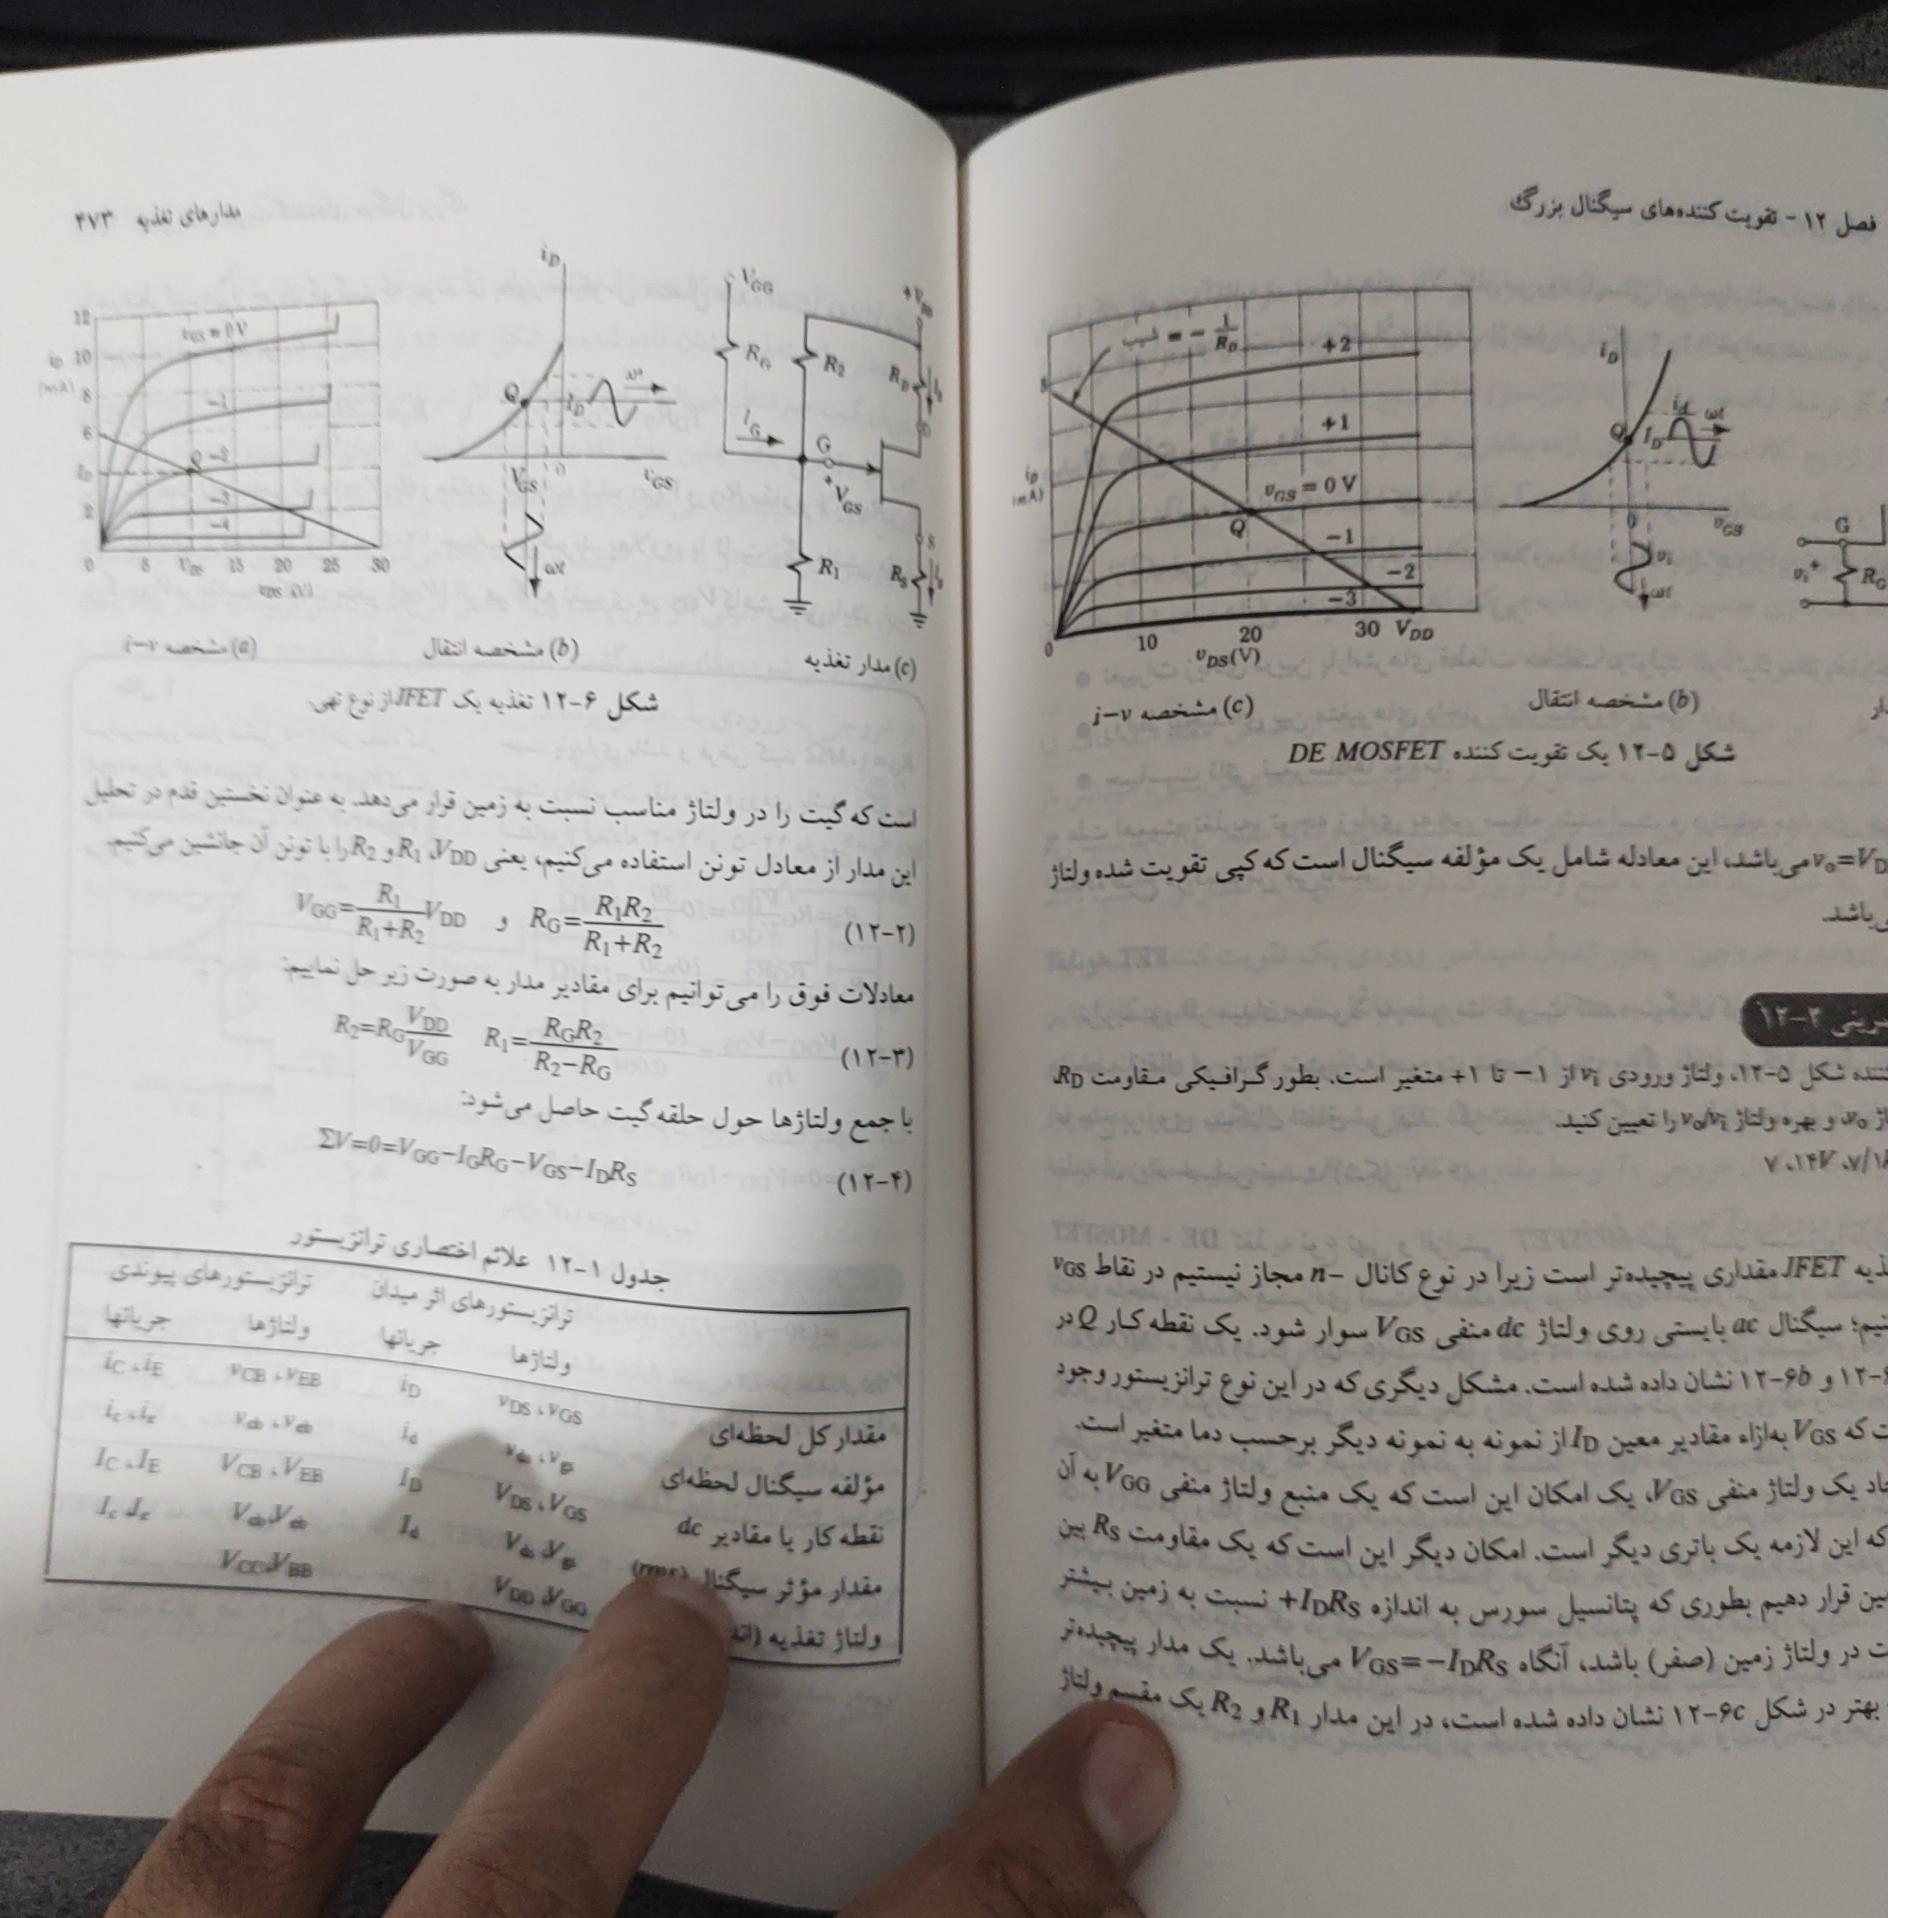 فصل ۱۲ - تقویت کننده‌های سیگنال بزرگ
شیب = - 1/RD
+2
+1
vGS = 0 V
-1
-2
-3
Q
8
iD (mA)
0 10 20 30 VDD
vDS(V)
iD
Q ID
id ωt
0 vGS
vi
ωt
G
vi + RG
(b) مشخصه انتقال
(c) مشخصه i-v
شکل ۵-۱۲ یک تقویت کننده DE MOSFET
می‌باشد، این معادله شامل یک مؤلفه سیگنال است که کپی تقویت شده ولتاژ
۱۲-۲
شکل ۵-۱۲، ولتاژ ورودی vi از ۱- تا ۱+ متغیر است. بطور گرافیکی مقاومت RD
vo، و بهره ولتاژ vo/vi را تعیین کنید.
۷ ،۱۴V
JFET مقداری پیچیده‌تر است زیرا در نوع کانال -n مجاز نیستیم در نقاط vGS
سیگنال ac بایستی روی ولتاژ dc منفی VGS سوار شود. یک نقطه کار Q در
و ۱۲-۶b نشان داده شده است. مشکل دیگری که در این نوع ترانزیستور وجود
که VGS به‌ازاء مقادیر معین ID از نمونه به نمونه دیگر برحسب دما متغیر است.
یک ولتاژ منفی VGS، یک امکان این است که یک منبع ولتاژ منفی VGG به آن
که این لازمه یک باتری دیگر است. امکان دیگر این است که یک مقاومت RS بین
قرار دهیم بطوری که پتانسیل سورس به اندازه IDRS+ نسبت به زمین بیشتر
در ولتاژ زمین (صفر) باشد، آنگاه VGS=-IDRS می‌باشد. یک مدار پیچیده‌تر
بهتر در شکل ۱۲-۶c نشان داده شده است، در این مدار R1 و R2 یک مقسم ولتاژ
مدارهای تغذیه ۴۷۳
12
10
8
6
ID
2
0
iD (mA)
vGS = 0 V
-1
Q -2
-3
-4
0 5 VDS 15 20 25 30
vDS (V)
iD
Q
ID
ωt
VGS 0 vGS
ωt
VGG
RG
IG
R2
+VDD
RD ID
G
+ VGS
R1
S
RS ID
(a) مشخصه i-v
(b) مشخصه انتقال
(c) مدار تغذیه
شکل ۶-۱۲ تغذیه یک JFET از نوع تهی.
است که گیت را در ولتاژ مناسب نسبت به زمین قرار می‌دهد. به عنوان نخستین قدم در تحلیل
این مدار از معادل تونن استفاده می‌کنیم، یعنی VDD، R1 و R2 را با تونن آن جانشین می‌کنیم.
(۱۲-۲) RG=R1R2/(R1+R2) و VGG=R1/(R1+R2) VDD
معادلات فوق را می‌توانیم برای مقادیر مدار به صورت زیر حل نماییم:
(۱۲-۳) R1=RGR2/(R2-RG) R2=RG VDD/VGG
با جمع ولتاژها حول حلقه گیت حاصل می‌شود:
(۱۲-۴) ΣV=0=VGG-IGRG-VGS-IDRS
جدول ۱-۱۲ علائم اختصاری ترانزیستور
ترانزیستورهای اثر میدان ترانزیستورهای پیوندی
ولتاژها جریانها ولتاژها جریانها
مقدار کل لحظه‌ای vDS ،vGS iD vCB ،vEB iC ،iE
مؤلفه سیگنال لحظه‌ای vds ،vgs id vcb ،veb ic ،ie
نقطه کار یا مقادیر dc VDS ،VGS ID VCB ،VEB IC ،IE
مقدار مؤثر سیگنال (rms) Vds ،Vgs Id Vcb ،Veb Ic ،Ie
ولتاژ تغذیه VDD ،VGG VCC ،VBB